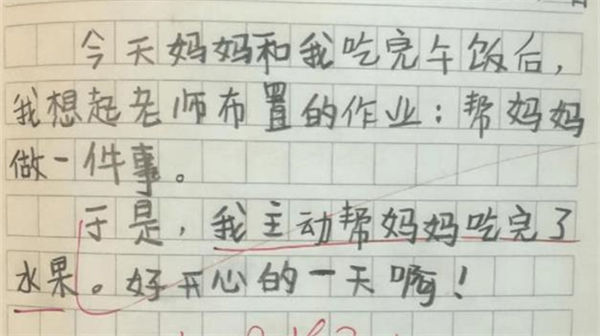 今天妈妈和我吃完午饭后,
我想起老师布置的作业:帮妈妈
做一件事。
于是,我主动帮妈妈吃完了
水果。好开心的一天啊!